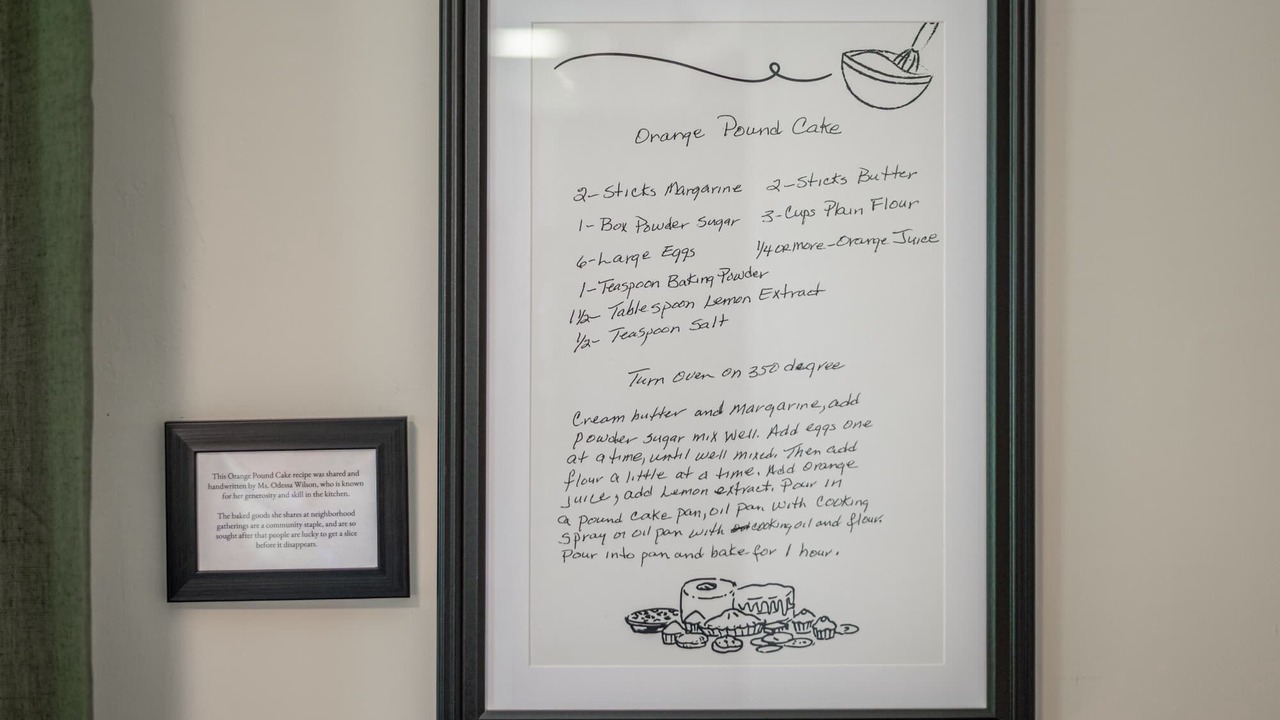 Orange Pound Cake
2-Sticks Margarine 2-Sticks Butter
1-Box Powder Sugar 3-Cups Plain Flour
6-Large Eggs 1/4 or more-Orange Juice
1-Teaspoon Baking Powder
1 1/2- Tablespoon Lemon Extract
1/2- Teaspoon Salt
Turn Oven on 350 degree
Cream butter and Margarine, add
powder sugar mix well. Add eggs one
at a time, until well mixed. Then add
flour a little at a time. Add Orange
Juice, add Lemon extract. Pour in
a pound cake pan, oil pan with cooking
spray or oil pan with cooking oil and flour.
Pour into pan and bake for 1 hour.
This Orange Pound Cake recipe was shared and
handwritten by Ms. Odessa Wilson, who is known
for her generosity and skill in the kitchen.
The baked goods she shares at neighborhood
gatherings are a community staple, and are so
sought after that people are lucky to get a slice
before it disappears.